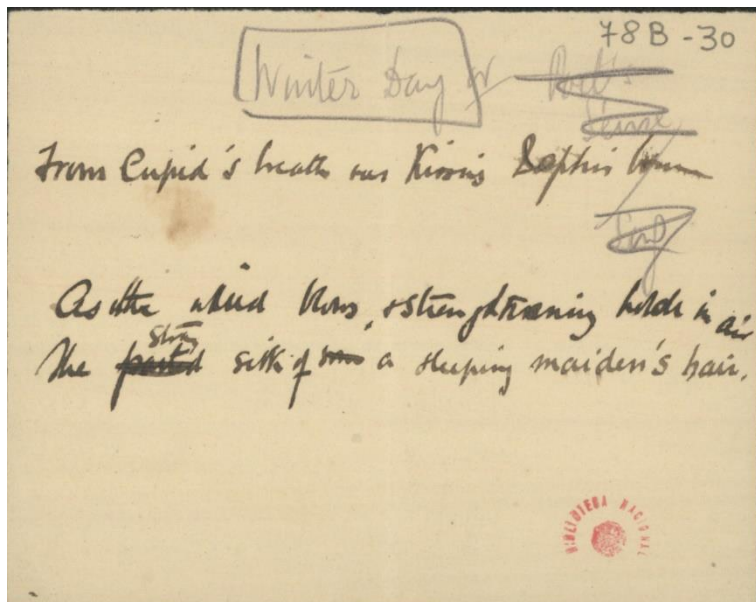 78B-30
Winter Day or
From Cupid's breath our Kissing
As the wind blows, & strengthening holds in air
strong
The silk of a sleeping maiden's hair.
BIBLIOTECA NACIONAL